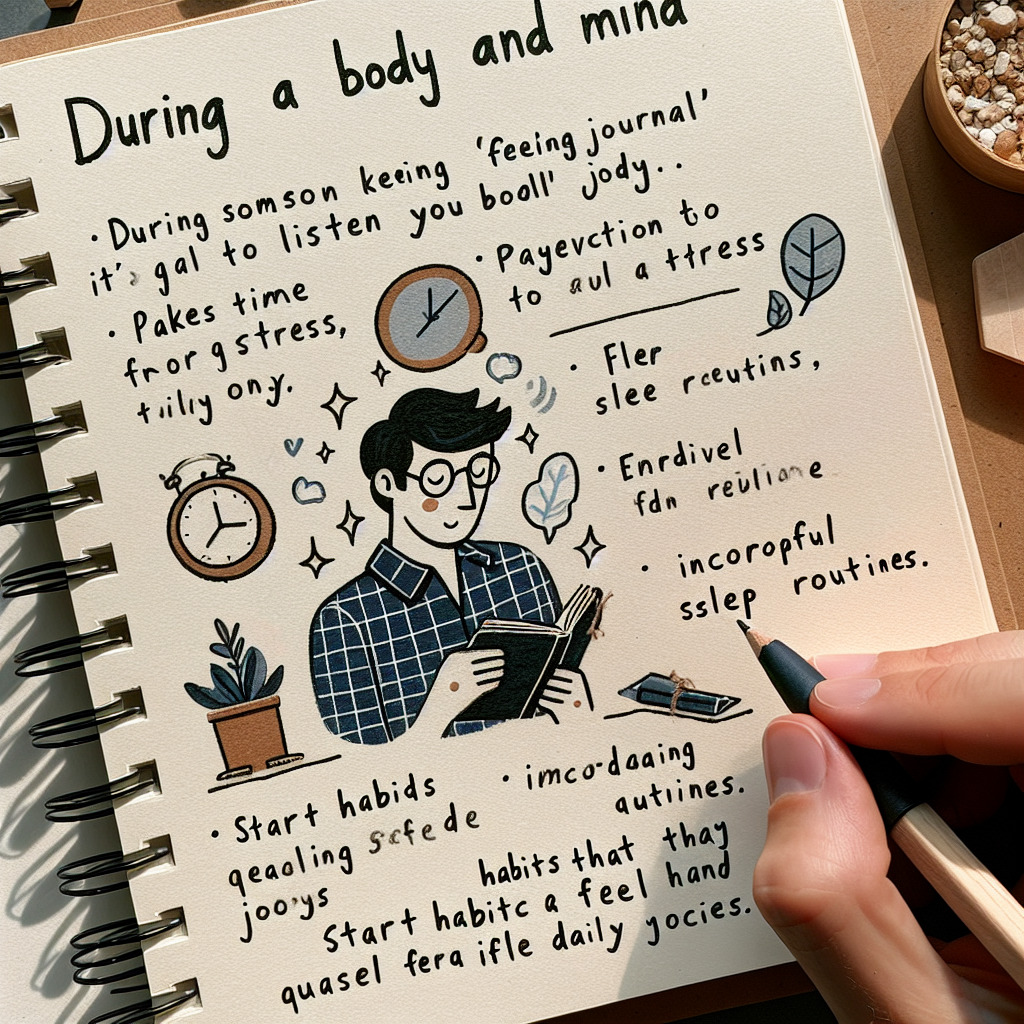 During a body and mina
• During somson keeing 'feeing journal'
it's gal to listen you booll' jody..
• Pakes time
from g stress,
tiily ony.
• Payevction to
to aul a ttress
• Fler
slee rceutins,
• Enrdivel
fdn reuliane
• incoropful
sslep routines.
• Start habids
qeaoling scfede
joo'ys
• imco-daaing
autiines.
habits that thay
Start habitc a feel hand
quasel fera ifle daily yocies.